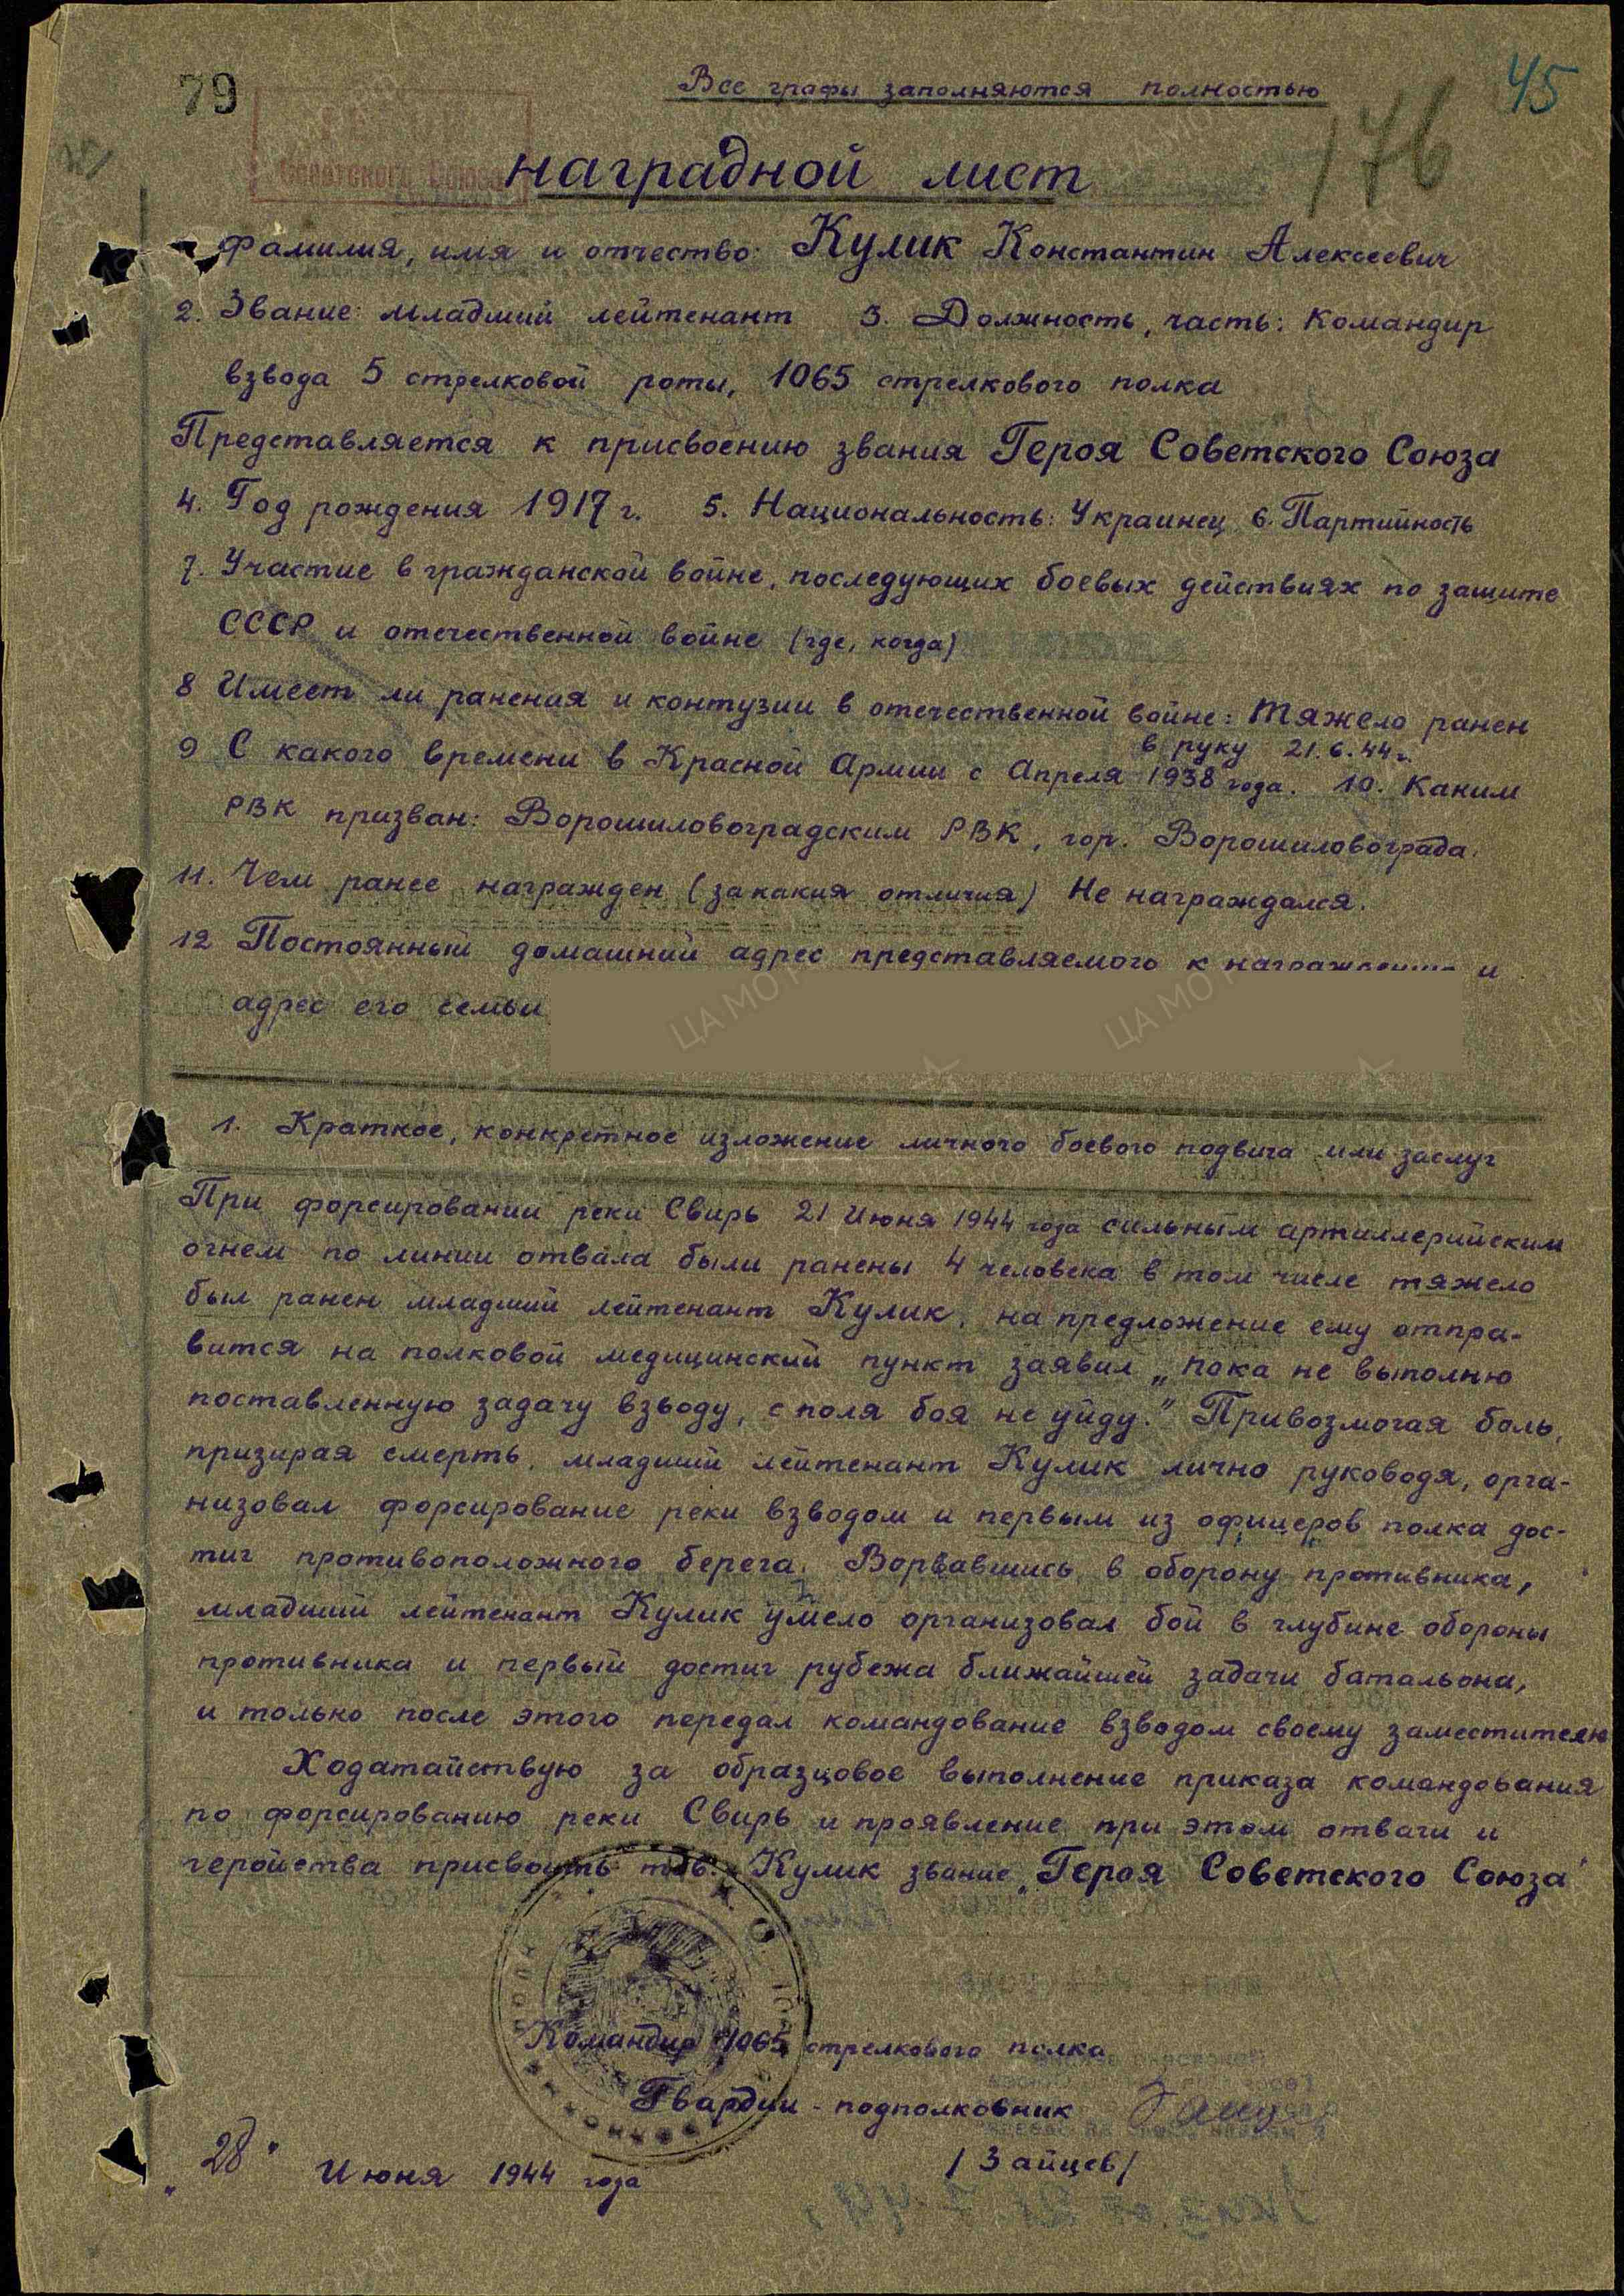 79
Все графы заполняются полностью
45
176
Советского Союза
наградной лист
Фамилия, имя и отчество: Кулик Константин Алексеевич
2. Звание: младший лейтенант 3. Должность, часть: Командир
взвода 5 стрелковой роты, 1065 стрелкового полка
Представляется к присвоению звания Героя Советского Союза
4. Год рождения 1917 г. 5. Национальность: Украинец 6. Партийность
7. Участие в гражданской войне, последующих боевых действиях по защите
СССР и отечественной войне (где, когда)
8 Имеет ли ранения и контузии в отечественной войне: Тяжело ранен
в руку 21.6.44 г.
9 С какого времени в Красной Армии с Апреля 1938 года. 10. Каким
РВК призван: Ворошиловоградским РВК, гор. Ворошиловограда.
11. Чем ранее награжден (за какия отличия) Не награждался.
12 Постоянный домашний адрес представляемого к и
адрес его семьи
1. Краткое, конкретное изложение личного боевого подвига или заслуг
При форсировании реки Свирь 21 Июня 1944 года сильным артиллерийским
огнем по линии отвала были ранены 4 человека в том числе тяжело
был ранен младший лейтенант Кулик, на предложение ему отпра-
вится на полковой медицинский пункт заявил „пока не выполню
поставленную задачу взводу, с поля боя не уйду." Привозмогая боль,
призирая смерть, младший лейтенант Кулик лично руководя, орга-
низовал форсирование реки взводом и первым из офицеров полка дос-
тиг противоположного берега. Ворвавшись в оборону противника,
младший лейтенант Кулик умело организовал бой в глубине обороны
противника и первый достиг рубежа ближайшей задачи батальона,
и только после этого передал командование взводом своему заместителю
Ходатайствую за образцовое выполнение приказа командования
по форсированию реки Свирь и проявление при этом отваги и
геройства присвоить тов. Кулик звание „Героя Советского Союза"
Командир 1065 стрелкового полка
Гвардии - подполковник
/Зайцев/
„28" Июня 1944 года
ЦА МО РФ